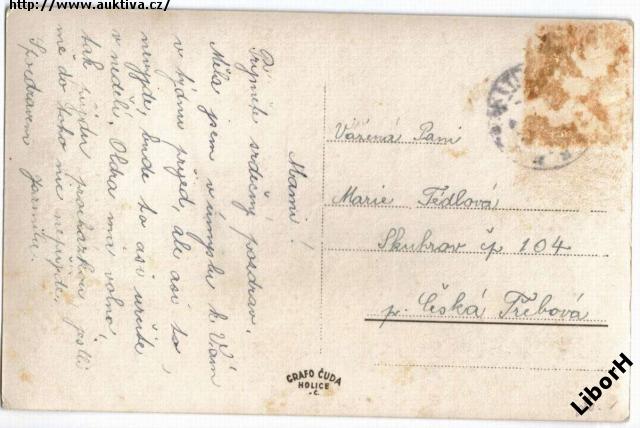 http://www.auktiva.cz/
Mami!
Přijměte srdečný pozdrav.
Měla jsem v úmyslu k Vám
v týdnu přijed, ale asi to
nevyjde, bude to asi určitě
v neděli. Olda má volno
tak přijdu procházkou, jestli
mě do toho nic nepřijde.
S pozdravem Jarmila.
Vážená Paní
Marie Fédlová
Skuhrov čp 104
p. Česká Třebová
GRAFO ČUDA
HOLICE
-Č.
LiborH